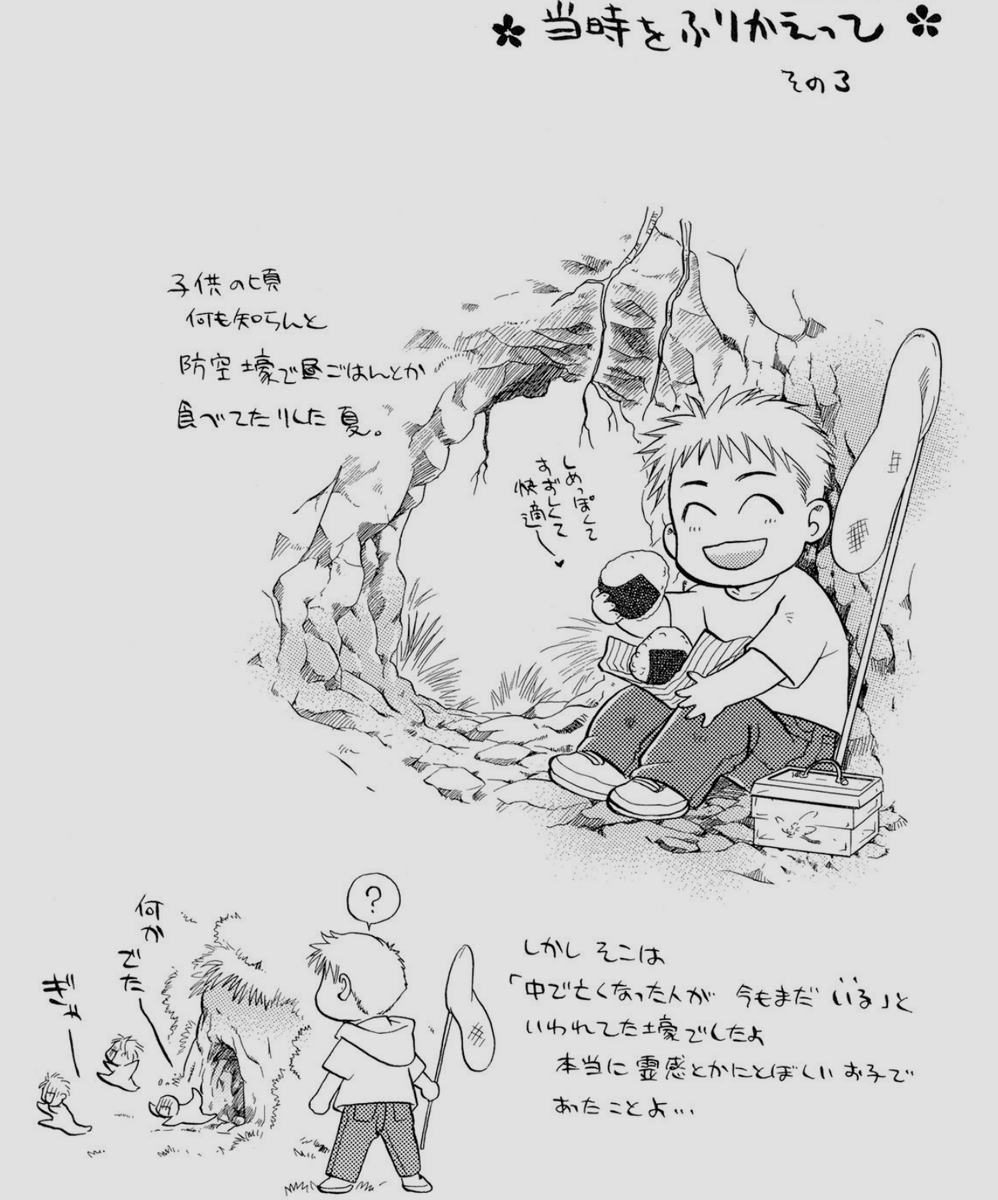 当時をふりかえって
その3
子供の頃
何も知らんと
防空壕で昼ごはんとか
食べてたりした夏。
しめっぽくて
すずしくて
快適ー
?
何か
でたー
ぎゃー
しかし そこは
「中で亡くなった人が 今もまだ いる」と
いわれてた壕でしたよ
本当に 霊感とかにとぼしい お子で
あったことよ…